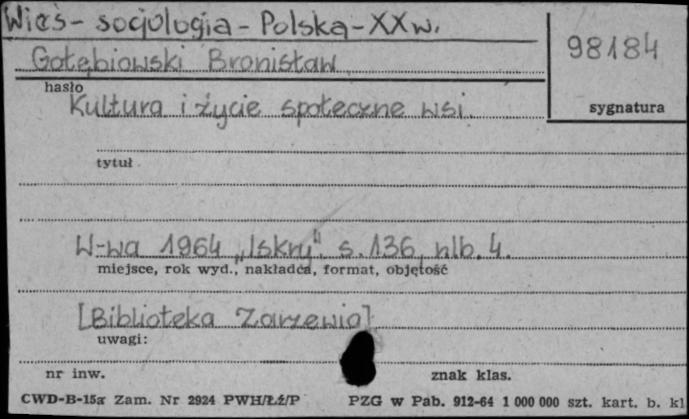 Wieś - socjologia - Polska - XX w.
98184
Gołębiowski Bronisław
hasło
Kultura i życie społeczne wsi.
sygnatura
tytuł
W-wa 1964 „Iskry". s. 136, nlb. 4.
miejsce, rok wyd., nakładca, format, objętość
[Biblioteka Zarzewia]
uwagi:
nr inw.
znak klas.
CWD-B-15a Zam. Nr 2924 PWH/Łź/P
PZG w Pab. 912-64 1 000 000 szt. kart. b. kl